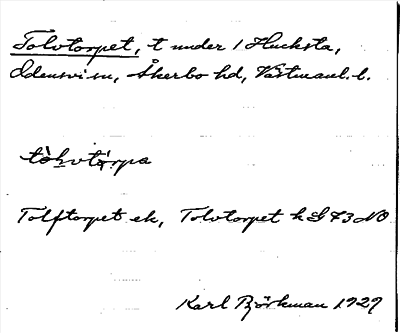 Tolvtorpet, t under 1 Hucksta,
Odensvi sn, Åkerbo hd, Västmanl. l.
tòḷvtɷrpa
Tolftorpet ek, Tolvtorpet k G 73 NO
Karl Björkman 1929